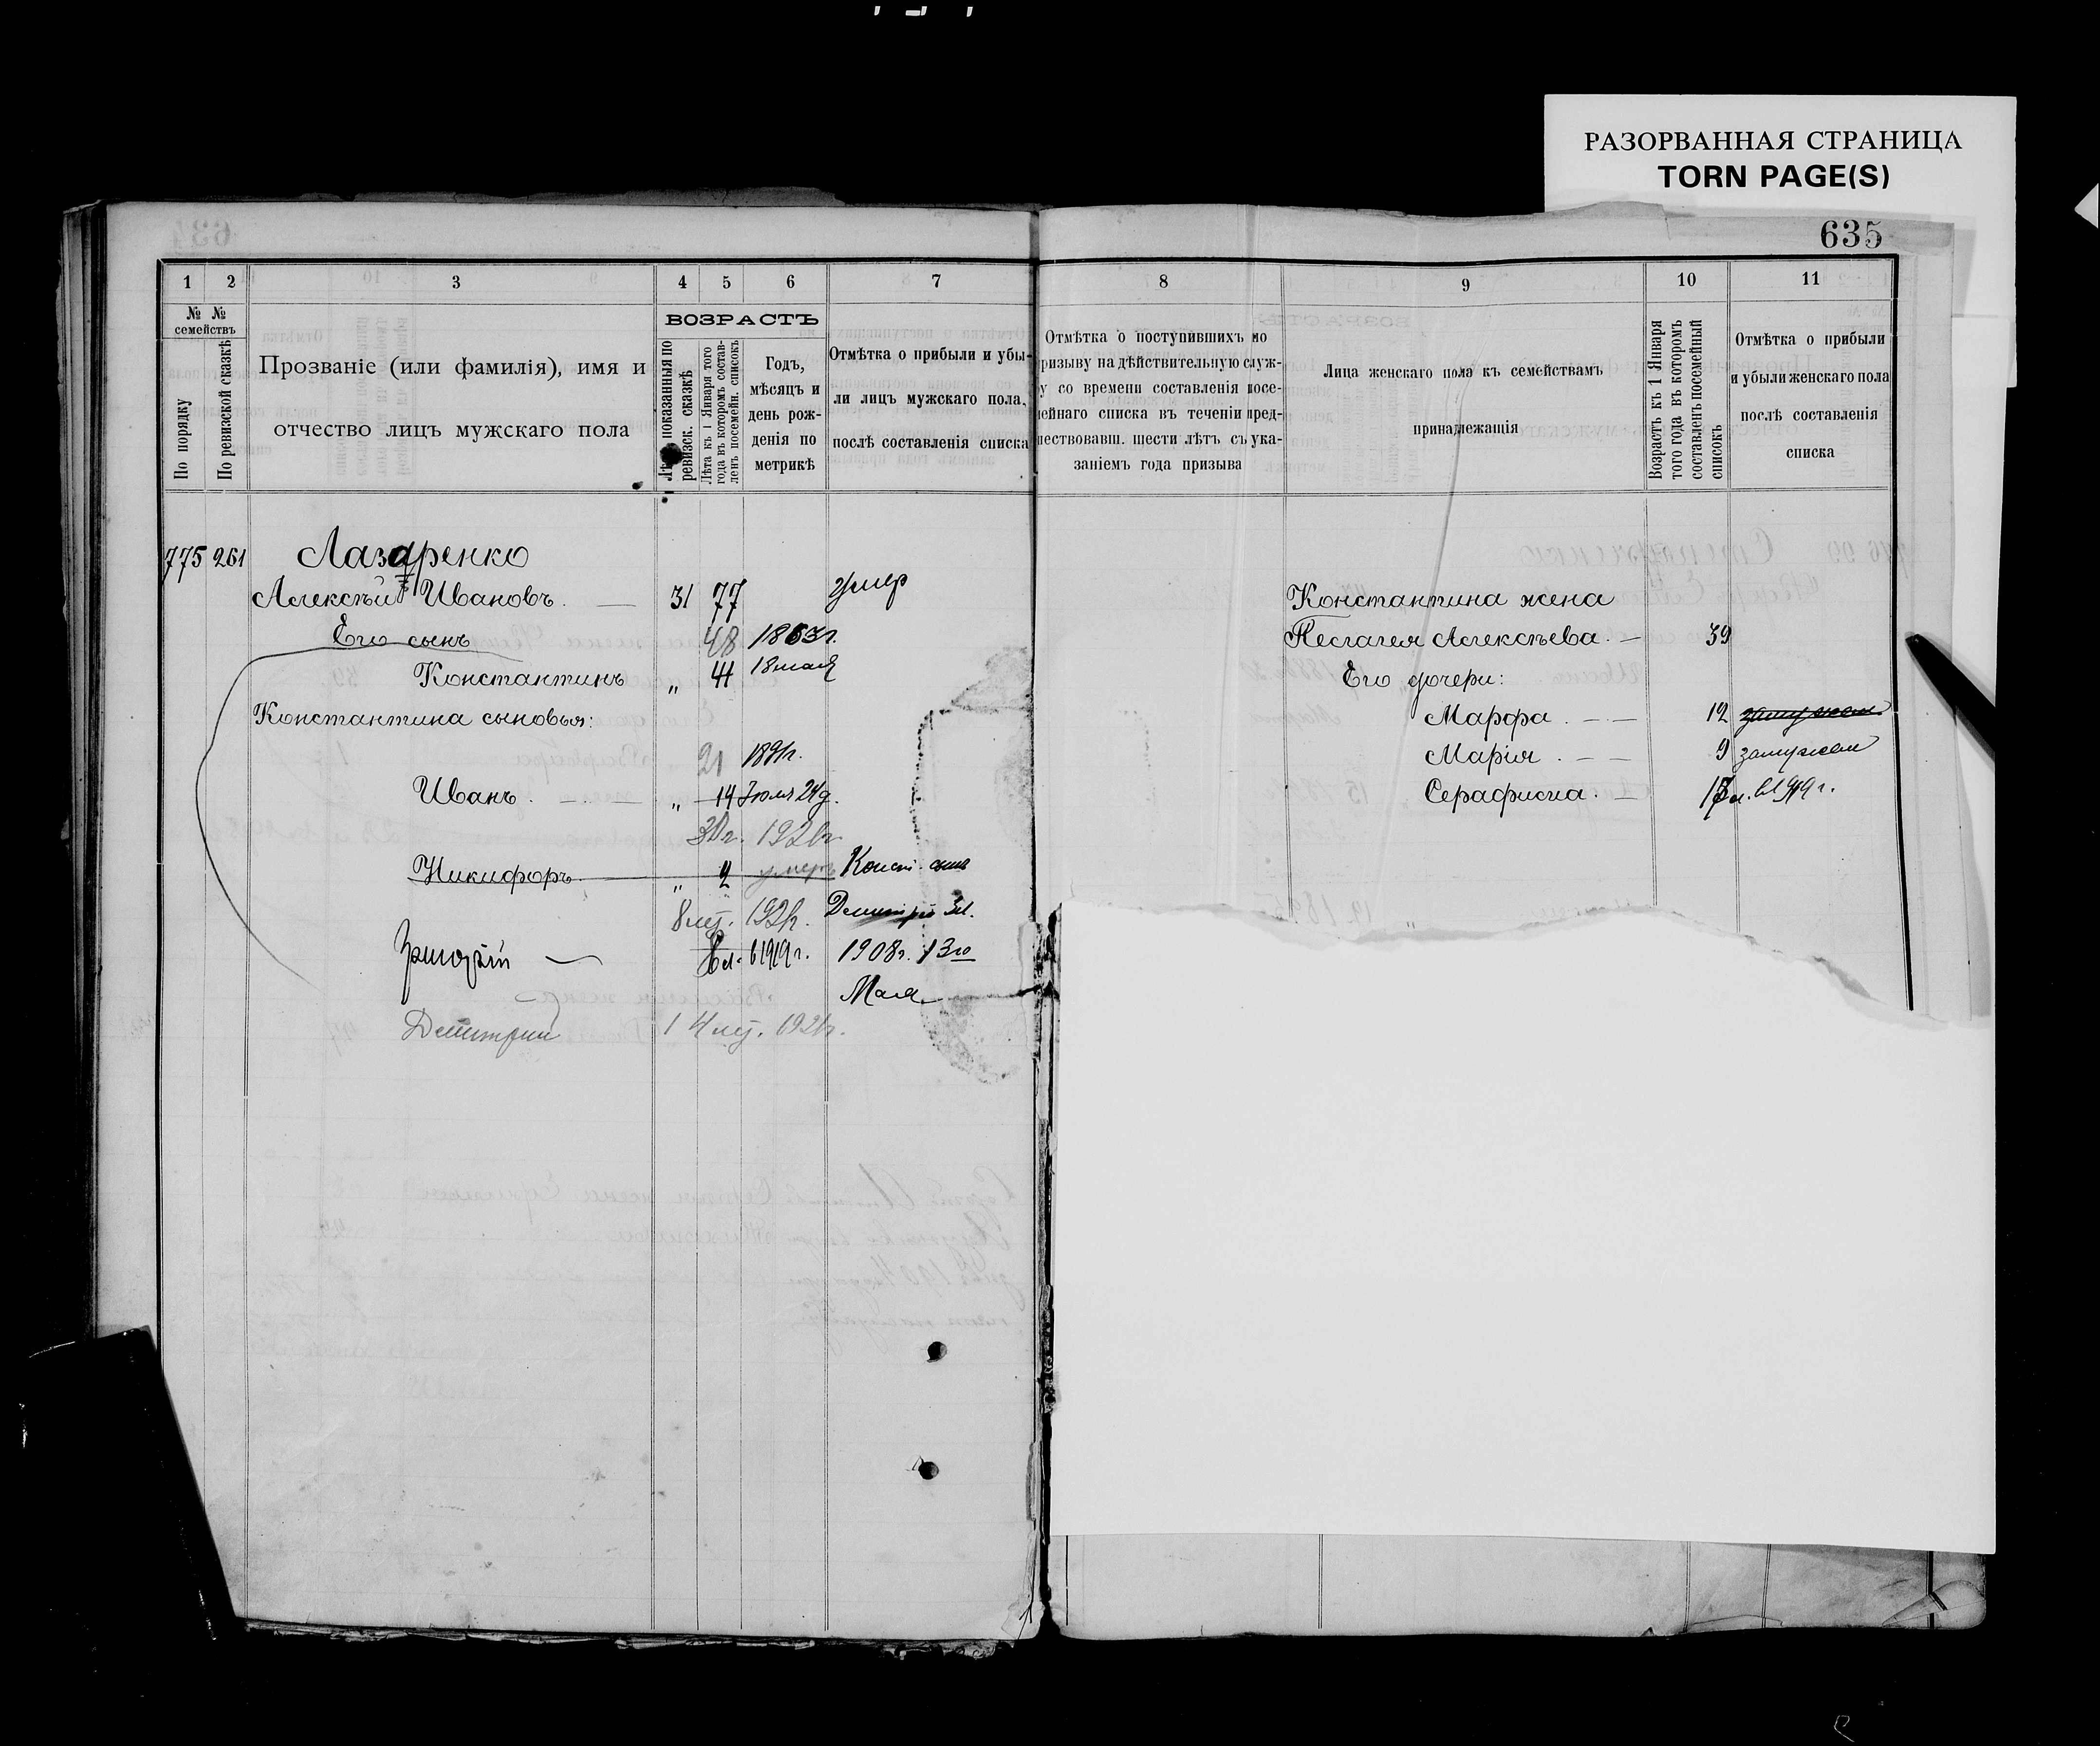 РАЗОРВАННАЯ СТРАНИЦА
TORN PAGE(S)
635
1 2 3 4 5 6 7
№ № семействъ
По порядку
По ревизской сказкѣ
Прозваніе (или фамилія), имя и
отчество лицъ мужскаго пола
ВОЗРАСТЪ
показанныя по
ревизск. сказкѣ
Лѣта къ 1 Января того
года въ которомъ состав-
ленъ посемейн. списокъ
Годъ,
мѣсяцъ и
день рож-
денія по
метрикѣ
Отмѣтка о прибыли и убы-
ли лицъ мужскаго пола,
послѣ составленія списка
775 261 Лазаренко
Алексѣй Ивановъ. 31 77 умер
Его сынъ 48 1863г.
Константинъ „ 41 18 мая
Константина сыновья:
21 1891г.
Иванъ. „ 14 Іюля 24д.
1921г.
Никифоръ „ 2 умеръ Конст. сынъ
8 лѣт. 1921г. Дмитрій 3л.
6 1919г. 1908г. 13го
Мая
Дмитрий 14 лѣт. 1921г.
8 9 10 11
Отмѣтка о поступившихъ по
ризыву на дѣйствительную служ-
у со времени составленія посе-
ейнаго списка въ теченіи пред-
ествовавш. шести лѣтъ съ ука-
заніемъ года призыва
Лица женскаго пола къ семействамъ
принадлежащія
Возрастъ къ 1 Января
того года въ которомъ
составленъ посемейный
списокъ
Отмѣтка о прибыли
и убыли женскаго пола
послѣ составленія
списка
Константина жена
Пелагея Алексѣева. 39
Его дочери:
Марфа 12 замужем
Марія 9 замужем
Серафима. 1919 г.